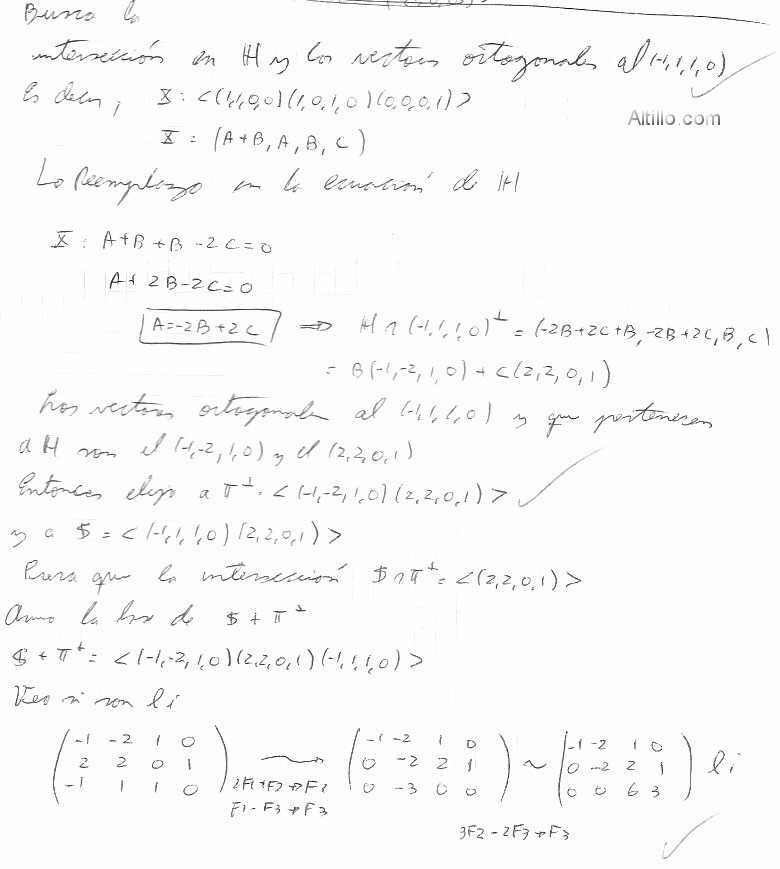 Busco la
intersección en H y los vectores ortogonales al (-1,1,1,0)
Es decir, X: <(1,1,0,0)(1,0,1,0)(0,0,0,1)>
Altillo.com
X = (A+B, A, B, C)
Lo Reemplazo en la ecuación de H
X: A+B+B-2C=0
A+2B-2C=0
A=-2B+2C ⇒ H∩(-1,1,1,0)⊥ = (-2B+2C+B, -2B+2C, B, C)
= B(-1,-2,1,0)+C(2,2,0,1)
Los vectores ortogonales al (-1,1,1,0) y que pertenecen
a H son el (-1,-2,1,0) y el (2,2,0,1)
Entonces elijo a π⊥ = <(-1,-2,1,0)(2,2,0,1)>
y a S = <(-1,1,1,0)(2,2,0,1)>
Para que la intersección S∩π⊥ = <(2,2,0,1)>
Armo la base de S+π⊥
S+π⊥ = <(-1,-2,1,0)(2,2,0,1)(-1,1,1,0)>
Veo si son li
(-1 -2 1 0) (-1 -2 1 0) (-1 -2 1 0)
(2 2 0 1) → (0 -2 2 1) ~ (0 -2 2 1) li
(-1 1 1 0) (0 -3 0 0) (0 0 6 3)
2F1+F2→F2
F1-F3→F3
3F2-2F3→F3